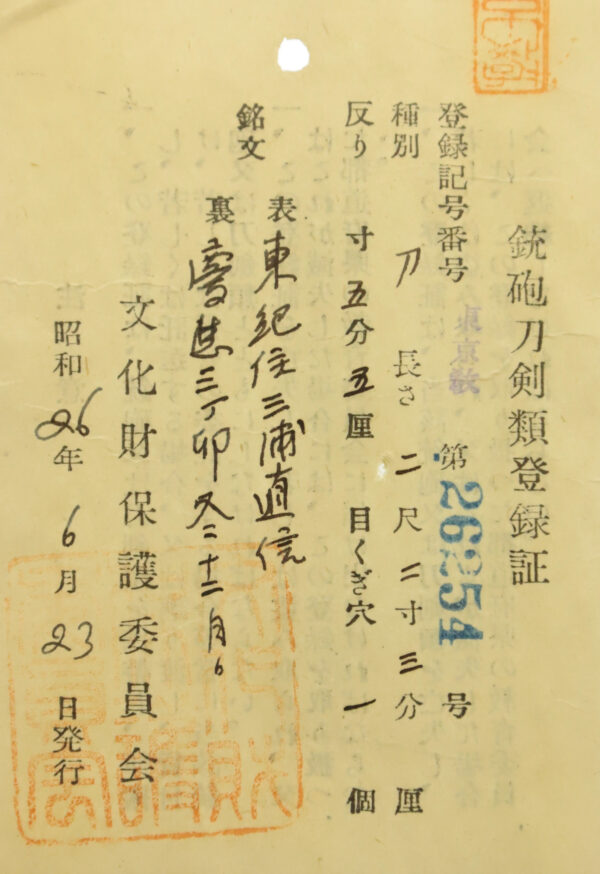 銃砲刀剣類登録証
登録記号番号 東京教 第26254号
種別 刀 長さ 二尺二寸三分 厘
反り 寸五分五厘 目くぎ穴 一個
銘文 表 東紀住三浦直信
裏 慶応三丁卯冬十二月
文化財保護委員会
昭和26年6月23日発行